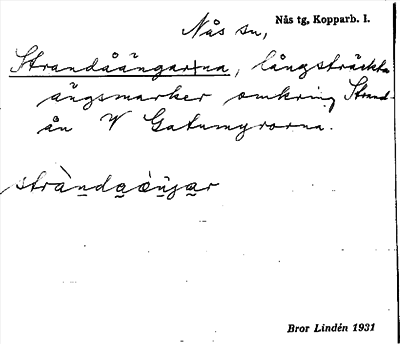 Nås sn, Nås tg, Kopparb. l.
Strandåängarna, långsträckta
ängsmarker omkring Strand-
ån V Gatumyrorna.
Bror Lindén 1931